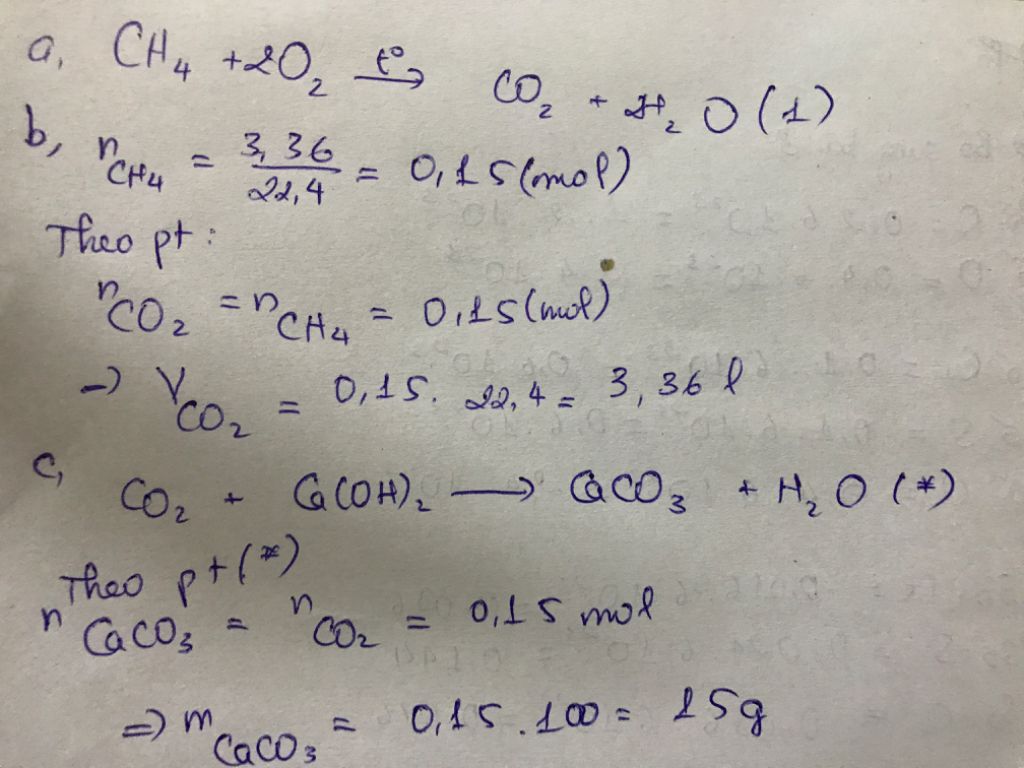 a, CH₄ + 2O₂ t° → CO₂ + 2H₂O (1)
b, nCH₄ = 3,36 / 22,4 = 0,15 (mol)
Theo pt :
nCO₂ = nCH₄ = 0,15 (mol)
→ VCO₂ = 0,15. 22,4 = 3,36 l
c, CO₂ + Ca(OH)₂ → CaCO₃ + H₂O (*)
Theo pt (*)
nCaCO₃ = nCO₂ = 0,15 mol
=> mCaCO₃ = 0,15 . 100 = 15g